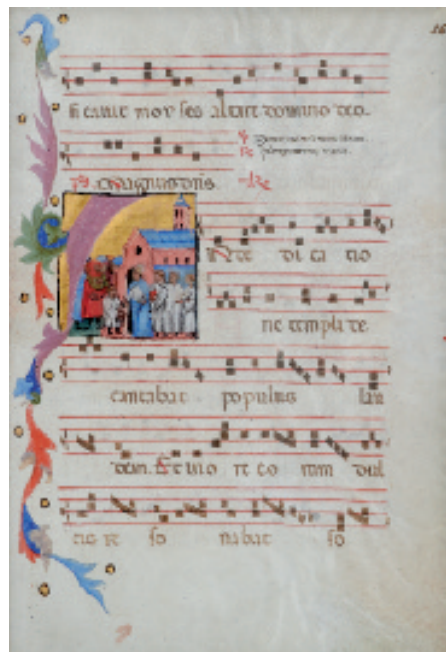 fi cavit moy ses altare domino deo.
magnus dns.
N de di ca tio
ne templi de
cantabat populus lau
dem. Et in o re eo rum dul
cis re so nabat so